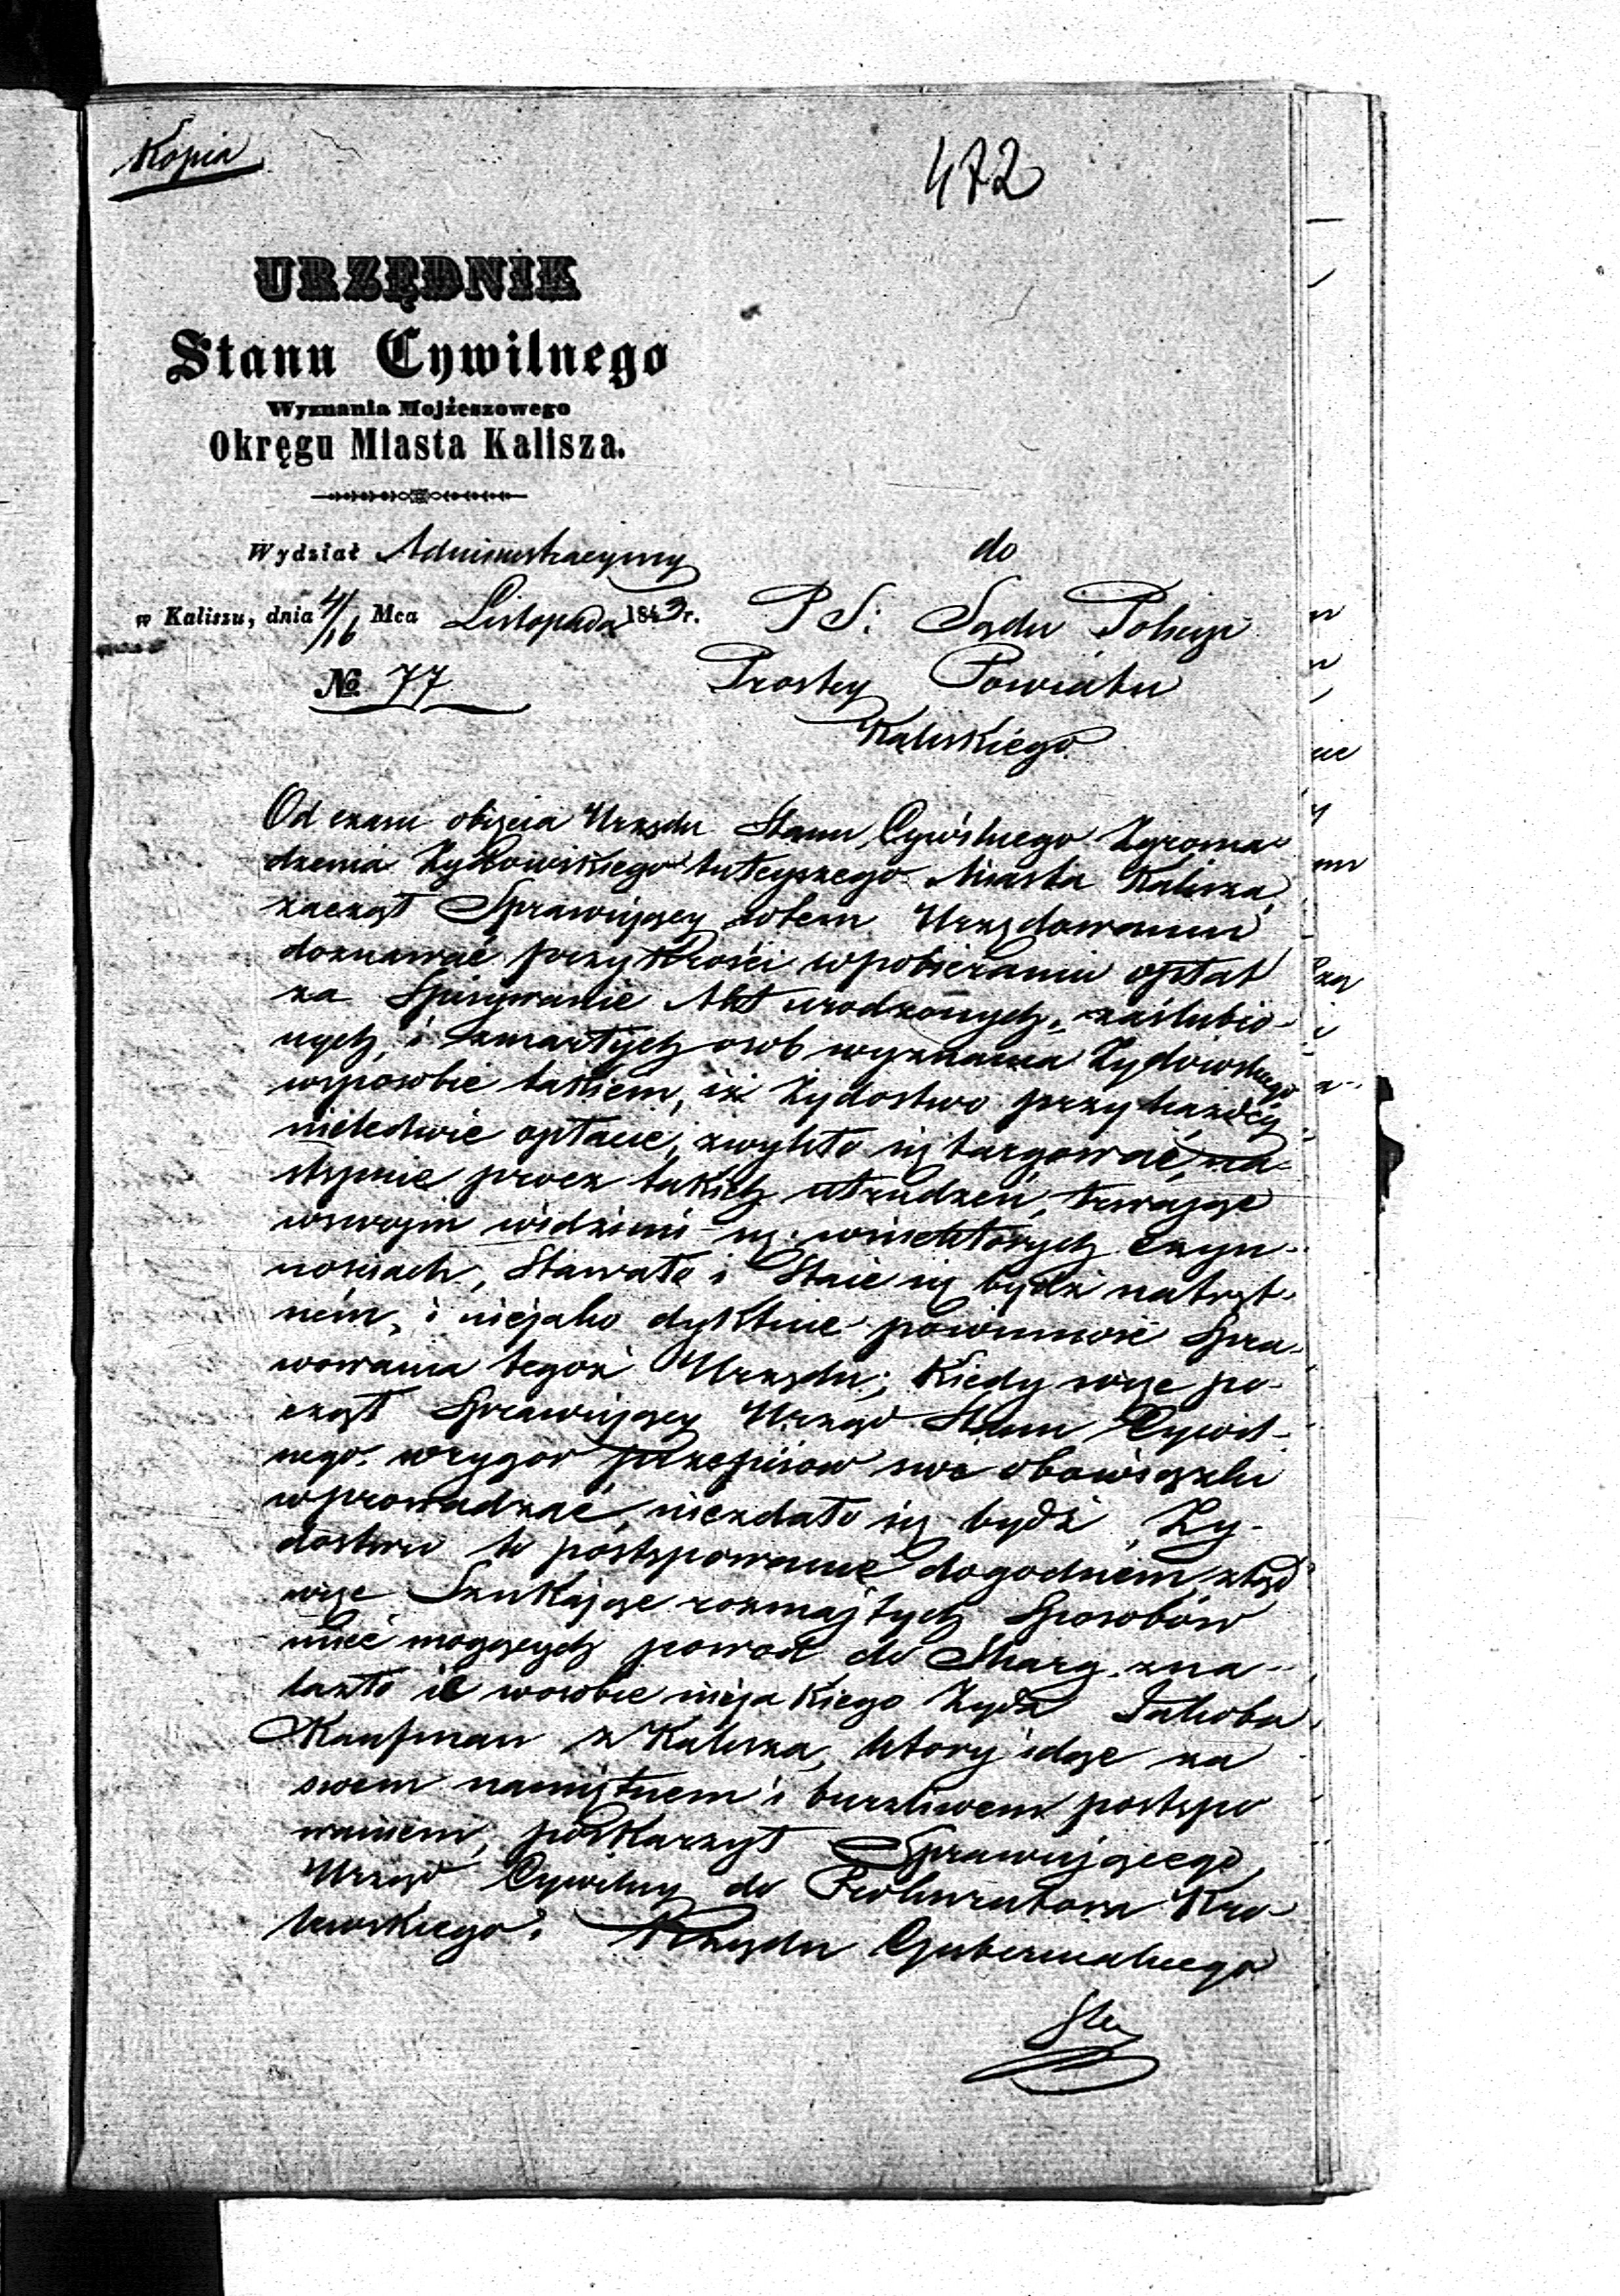 Kopia
472
URZĘDNIK
Stanu Cywilnego
Wyznania Mojżeszowego
Okręgu Miasta Kalisza.
Wydział Administracyjny
w Kaliszu, dnia 4/16 Mca Listopada 1843 r.
No. 77
do
P S: Sądu Policyi
Prostey Powiatu
Kaliskiego
Od czasu objęcia Urzędu Stanu Cywilnego Zgroma
dzenia Żydowskiego tuteyszego Miasta Kalisza,
zaczął Sprawujący wtem Urzędowaniu
doznawać przykrości wpobieraniu opłat
za Spisywanie Akt urodzonych, zaślubio-
nych, i zmarłych osob wyznania Żydowskiego
wsposobie takiem, iż Żydostwo przy każdey
nieledwie opłacie, zwykło się targować, na-
stępnie przez takich utrudzeń, trwając
wswojem widzimi się wniektórych czyn-
nościach, Stawało i Staie się bydź natręt-
nem, i niejako dyktuie powinność Spra-
wowania tegoż Urzędu; Kiedy więc po-
czął Sprawujący Urząd Stanu Cywil-
nego wrygor przepisow swe obowiązki
wprowadzać, niezdało się bydź Ży-
dostwu te postępowanie dogodniem, ztąd
więc Szukając rozmajtych Sposobów
mieć mogących powod do Skarg, zna-
lazło ie wosobie niejakiego Żyda Jakoba
Kaufman z Kalisza, ktory idąc za
swem namiętnem i burzliwem postępo
waniem, poskarżył Sprawującego
Urząd Cywilny do Prokuratora Kro-
lewskiego. Rządu Gubernialnego